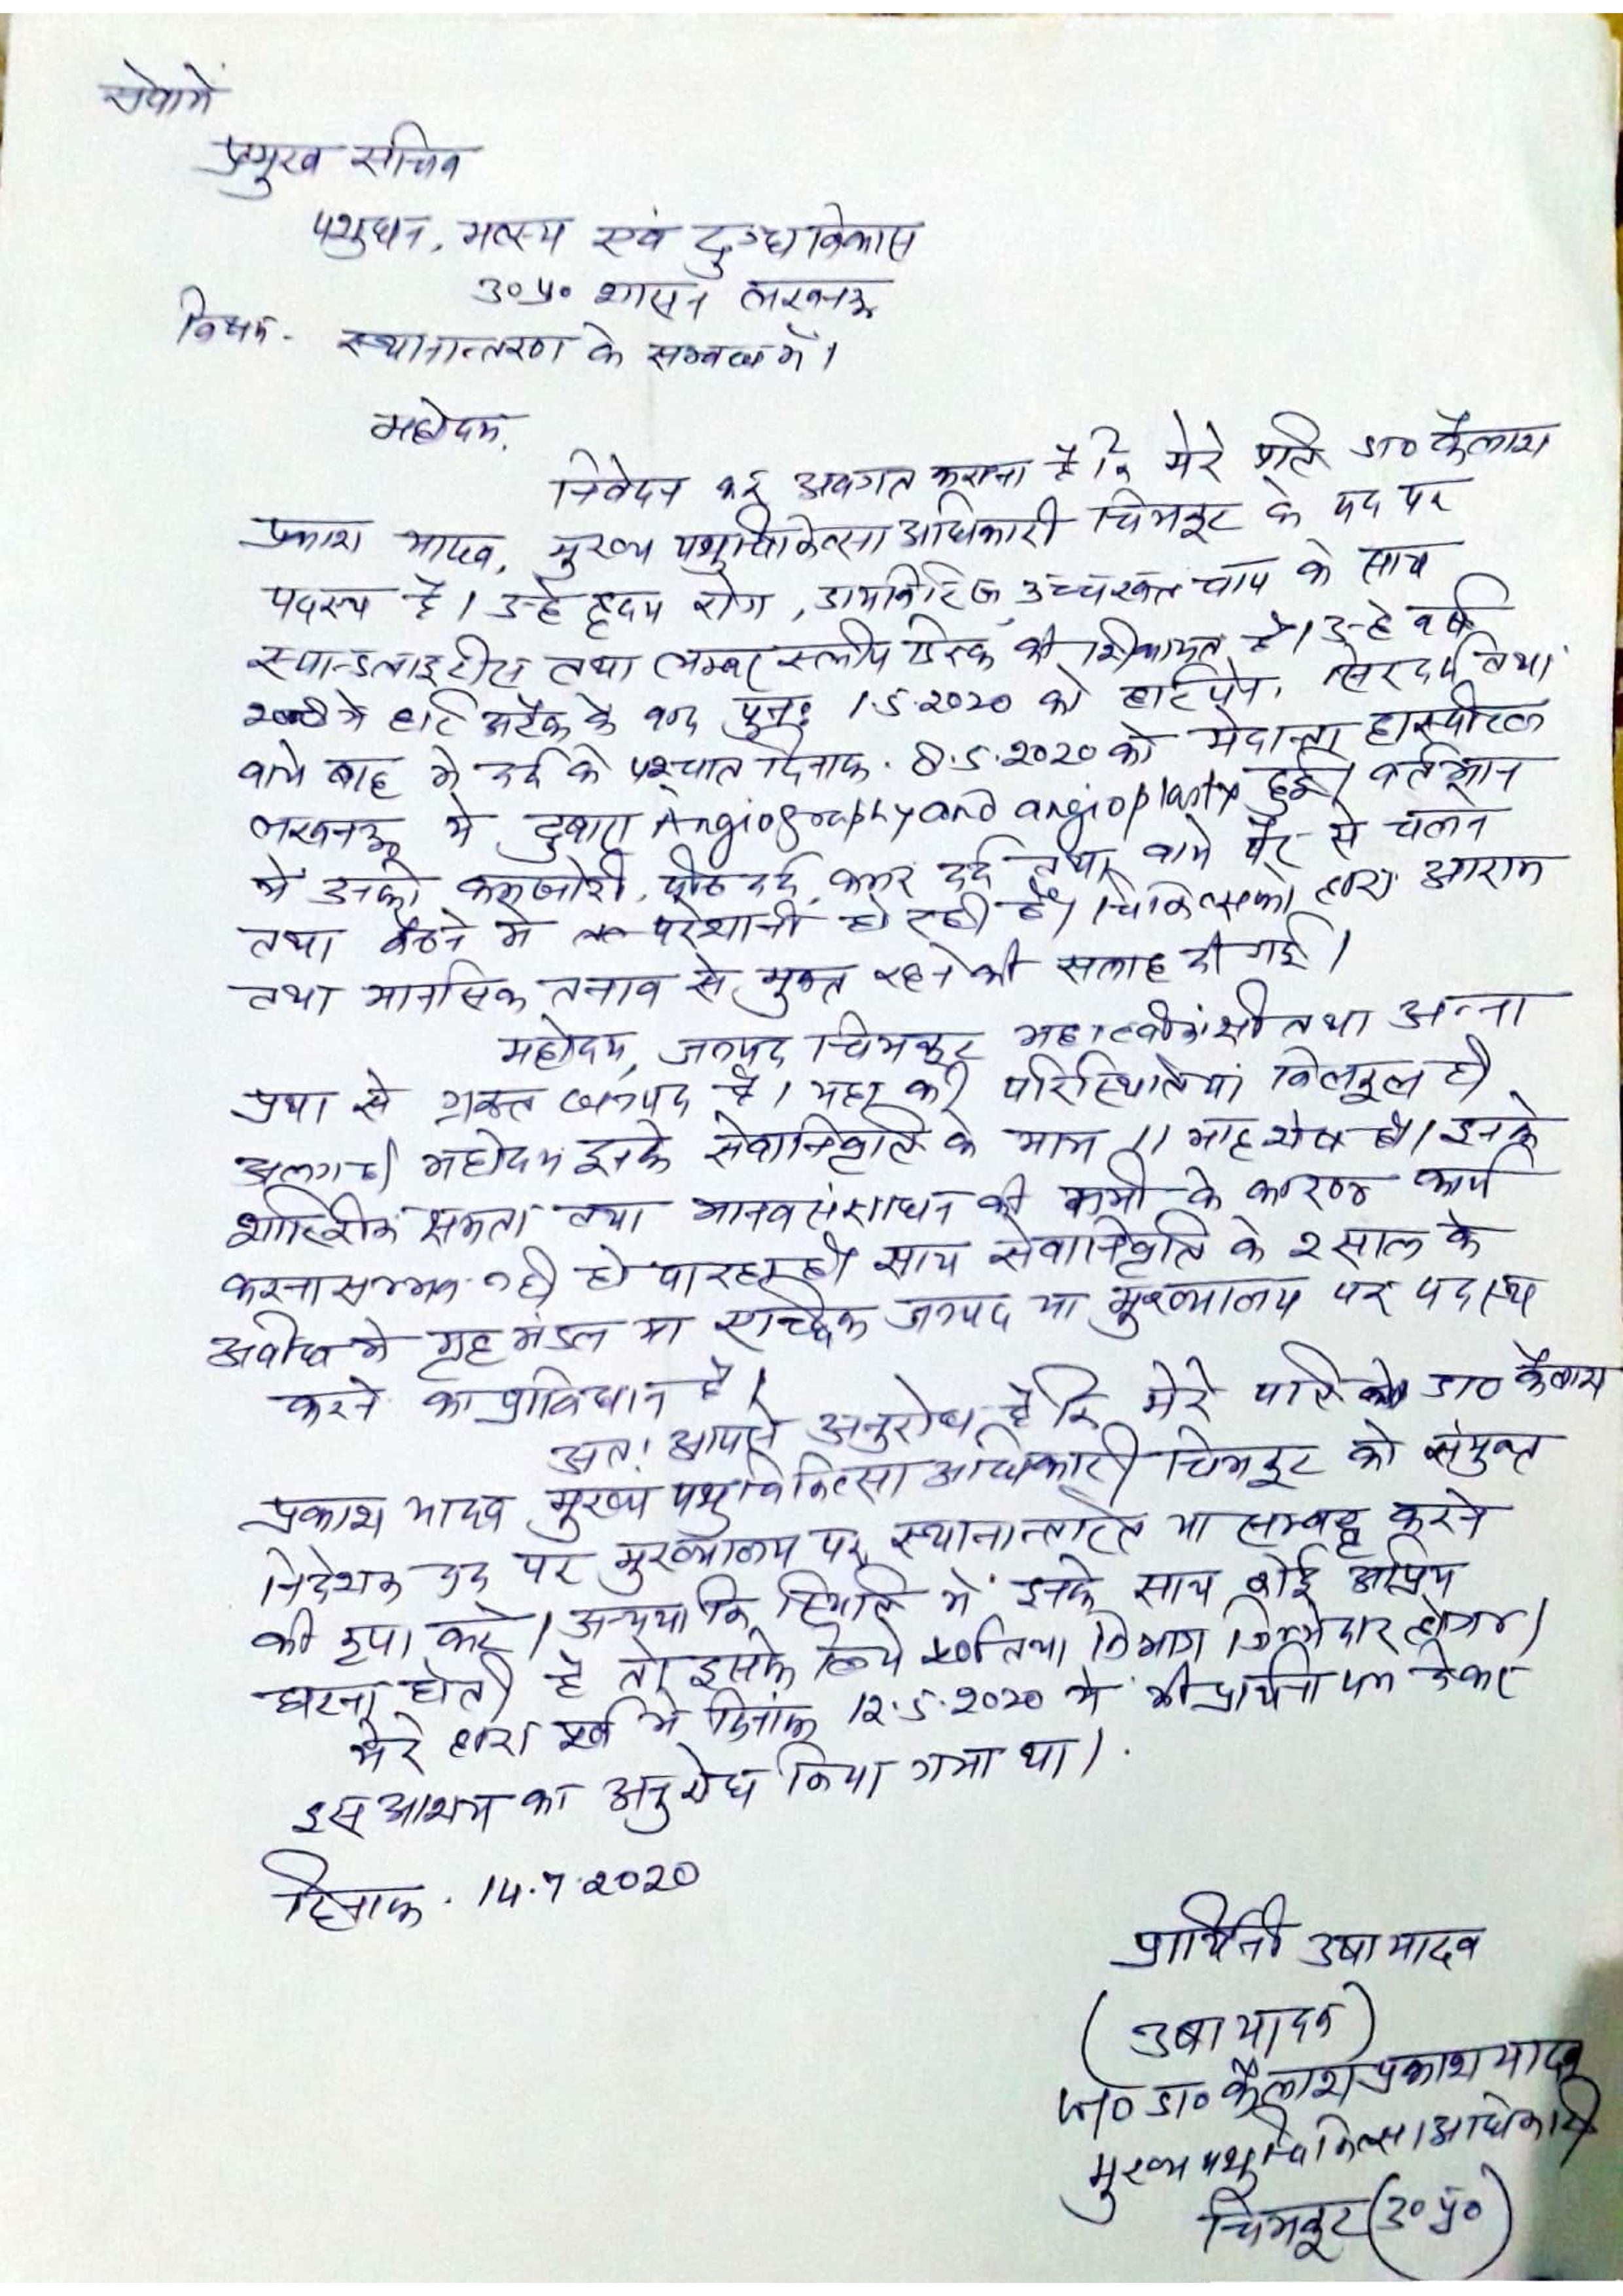 सेवामें
प्रमुख सचिव
पशुधन, मत्स्य एवं दुग्ध विकास
उ०प्र० शासन लखनऊ
विषय- स्थानान्तरण के सम्बन्ध में।
महोदय,
निवेदन कर अवगत कराना है कि मेरे पति डा० कैलाश
प्रकाश यादव, मुख्य पशुचिकित्सा अधिकारी चित्रकूट के पद पर
पदस्थ है। उन्हे हृदय रोग, डायबिटिज, उच्चरक्त चाप के साथ
स्पान्डलाइटीस तथा लम्बर स्लीप डिस्क की शिकायत है। उन्हे वर्ष
में हार्ट अटैक के बाद पुनः 1.5.2020 को हार्ट पेन, सिरदर्द तथा
बाये बाह मे दर्द के पश्चात दिनाक. 8.5.2020 को मेदान्ता हास्पीटल
लखनऊ मे दुबारा Angiography and angioplasty हुई। वर्तमान
मे उनको कमजोरी, पीठ दर्द, कमर दर्द तथा बाये पैर से चलने
तथा बैठने मे परेशानी हो रही है। चिकित्सको द्वारा आराम
तथा मानसिक तनाव से मुक्त रहने की सलाह दी गई।
महोदय, जनपद चित्रकूट महात्वाकांक्षी तथा अन्ना
प्रथा से ग्रस्त जनपद है। यहा की परिस्थितियां बिलकुल ही
अलग है। महोदय इनके सेवानिवृति के मात्र 11 माह शेष है। इनके
शारिरीक क्षमता तथा मानव संसाधन की कमी के कारण कार्य
करना सम्भव नही हो पा रहा है। साथ सेवानिवृति के 2 साल के
अवधि मे गृह मंडल या एच्छिक जनपद या मुख्यालय पर पदस्थ
करने का प्राविधान है।
अतः आपसे अनुरोध है कि मेरे पति डा० कैलाश
प्रकाश यादव मुख्य पशुचिकित्सा अधिकारी चित्रकूट को संयुक्त
निदेशक पद पर मुख्यालय पर स्थानान्तरित या सम्बद्ध करने
की कृपा करे। अन्यथा कि स्थिति में इनके साथ कोई अप्रिय
घटना होती है तो इसके लिये विभाग जिम्मेदार होगा।
मेरे द्वारा पूर्व मे दिनांक 12.5.2020 मे भी प्रार्थना पत्र देकर
इस आशय का अनुरोध किया गया था।
दिनाक. 14.7.2020
प्रार्थिनी उषा यादव
(उषा यादव)
W/O डा० कैलाश प्रकाश यादव
मुख्य पशुचिकित्सा अधिकारी
चित्रकूट (उ०प्र०)